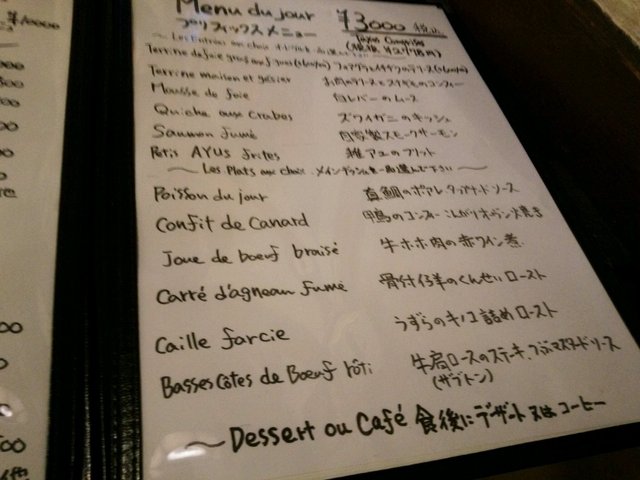 Menu du jour ¥3000 税込
プリフィックスメニュー Taxes Comprises
~ Les Entrées au choix
Terrine de foie gras フォアグラとイチヂクのテリーヌ
Terrine maison et gésier お肉のテリーヌとスナギモのコンフィー
Mousse de foie 白レバーのムース
Quiche aux Crabes ズワイガニのキッシュ
Saumon fumé 自家製スモークサーモン
Petis AYUS frites 稚アユのフリット
~ Les Plats au choix メインディッシュを一品選んで下さい ~
Poisson du jour 真鯛のポアレ タップナードソース
Confit de Canard 鴨のコンフィー こんがりオーブン焼き
Joue de boeuf braisé 牛ホホ肉の赤ワイン煮
Carré d'agneau fumé 骨付仔羊のくんせいロースト
Caille farcie うずらのキノコ詰めロースト
Basses Côtes de Boeuf rôti 牛肩ロースのステーキ、つぶマスタードソース
(ザブトン)
~ Dessert ou Café 食後にデザート又はコーヒー